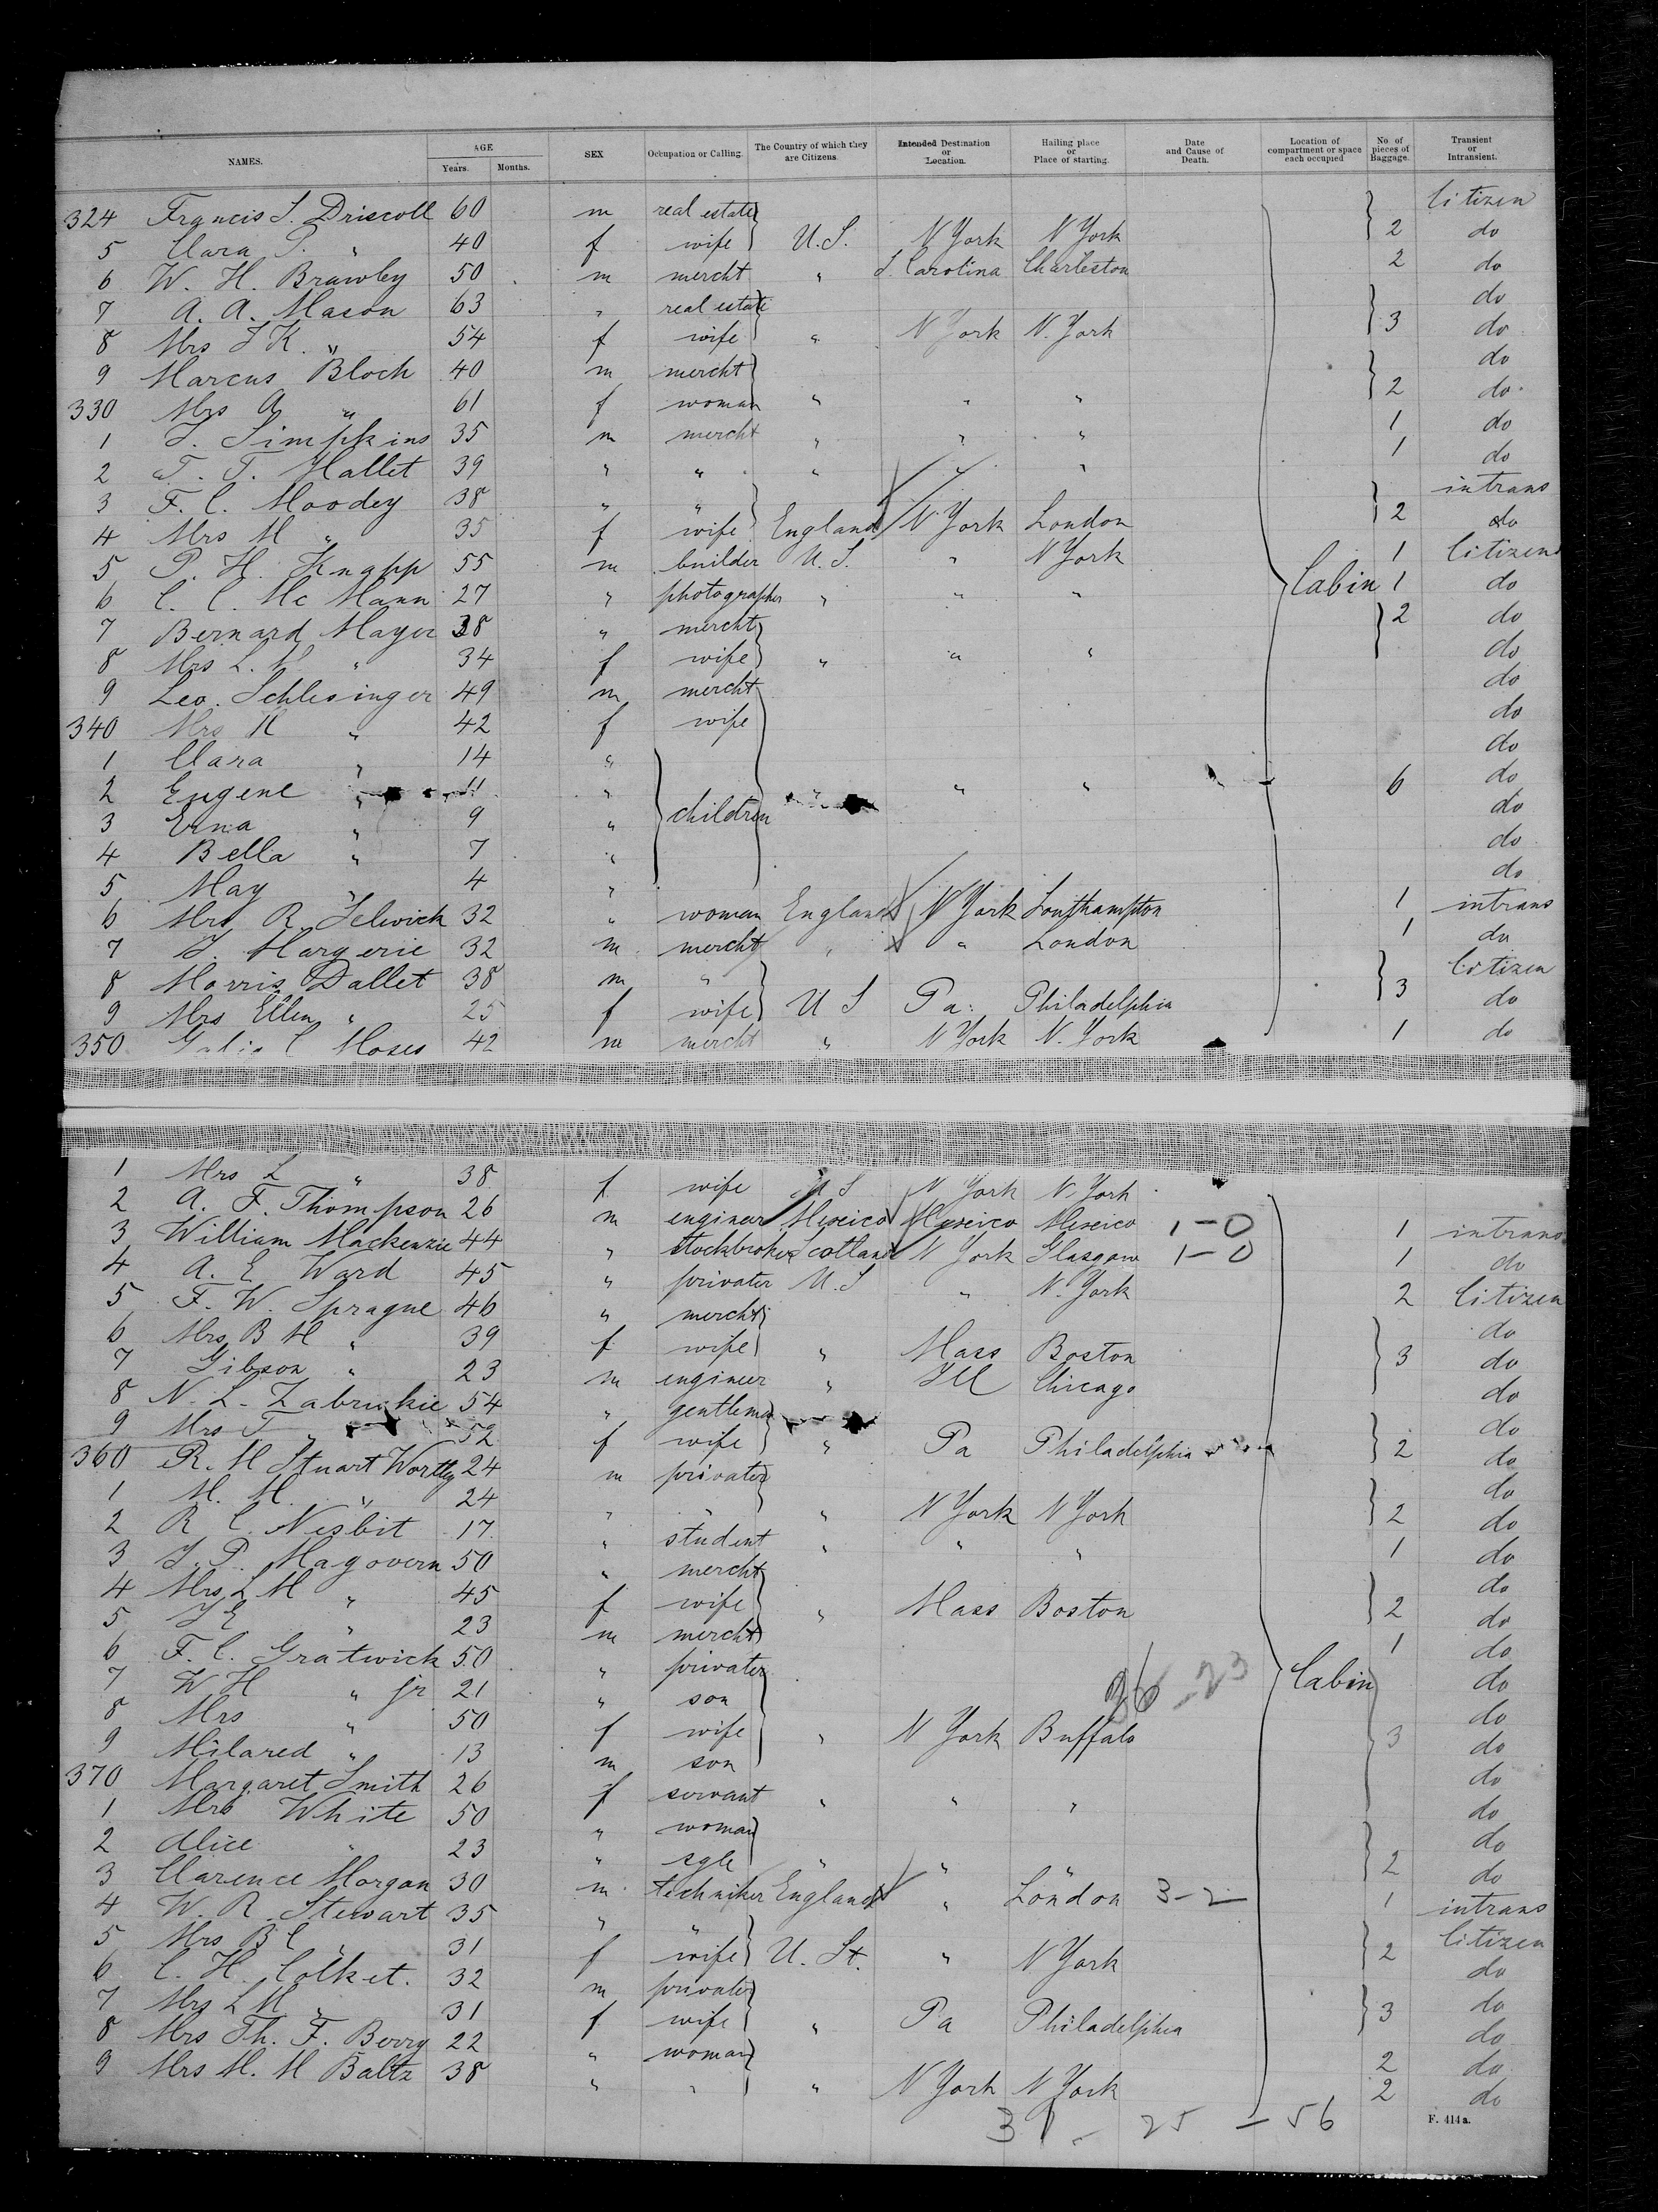 NAMES. AGE Years. Months. SEX Occupation or Calling. The Country of which they are Citizens. Intended Destination or Location. Hailing place or Place of starting. Date and Cause of Death. Location of compartment or space each occupied No. of pieces of Baggage. Transient or Intransient.
324 Francis S. Driscoll 60 m real estate Citizen
5 Clara " 40 f wife U.S. N York N York 2 do
6 W. H. Brawley 50 m mercht " S. Carolina Charleston 2 do
7 A. A. Mason 63 " real estate do
8 Mrs " 54 f wife " N York N. York 3 do
9 Marcus Bloch 40 m mercht do
330 Mrs A " 61 f woman " " " 2 do
1 Simpkins 35 m mercht " " " 1 do
2 T. Hallet 39 " " " " " 1 do
3 F. C. Moodey 38 " " intrans
4 Mrs M " 35 f wife England N York London 2 do
5 P. H. Knapp 55 m builder U.S. " N York 1 Citizen
6 C. C. Mc Mann 27 " photographer " " " Cabin 1 do
7 Bernard Mayer 38 " mercht 2 do
8 Mrs L. " 34 f wife " " " do
9 Leo. Schlesinger 49 m mercht do
340 Mrs " 42 f wife do
1 Clara " 14 " do
2 Eugene " 11 " " " " 6 do
3 Erna " 9 " children do
4 Bella " 7 " do
5 May " 4 " do
6 Mrs R. Selwick 32 " woman England N York Southampton 1 intrans
7 Margerie 32 m mercht " " London 1 do
8 Morris Dallet 38 m " Citizen
9 Mrs Ellen " 25 f wife U S Pa. Philadelphia 3 do
350 Moses 42 m mercht " N York N. York 1 do
1 Mrs L " 38 f wife U S N York N. York
2 A. F. Thompson 26 m engineer Mexico Mexico Mexico 1-0 1 intrans
3 William Mackenzie 44 " stockbroker Scotland N York Glasgow 1-0 1 do
4 A. E Ward 45 " privater U.S " N. York 2 Citizen
5 F. W. Sprague 46 " mercht do
6 Mrs B M " 39 f wife " Mass Boston 3 do
7 Gibson " 23 m engineer " Ill Chicago do
8 N. L. Zabriskie 54 " gentleman do
9 Mrs T " 52 f wife " Pa Philadelphia 2 do
360 R. M Stuart Wortley 24 m privater do
1 M. M. " 24 " " " N York N York 2 do
2 R C. Nesbit 17 " student " " " 1 do
3 Magovern 50 " mercht do
4 Mrs L M " 45 f wife " Mass Boston 2 do
5 " 23 m mercht 1 do
6 F. C. Gratwick 50 " privater do
7 W H " jr 21 " son 26 - 23 Cabin do
8 Mrs " 50 f wife " N York Buffalo 3 do
9 Milared " 13 m son do
370 Margaret Smith 26 f servant " " " do
1 Mrs White 50 " woman do
2 Alice " 23 " sgle " " " 2 do
3 Clarence Morgan 30 m techniker England " London 3-2 1 intrans
4 W. R. Stewart 35 " " Citizen
5 Mrs B C " 31 f wife U. St. " N York 2 do
6 C. H. Colket. 32 m privater do
7 Mrs L M " 31 f wife " Pa Philadelphia 3 do
8 Mrs Th. F. Berry 22 " woman 2 do
9 Mrs M. M Baltz 38 " " " N York N York 2 do
31 - 25 - 56
F. 414 a.